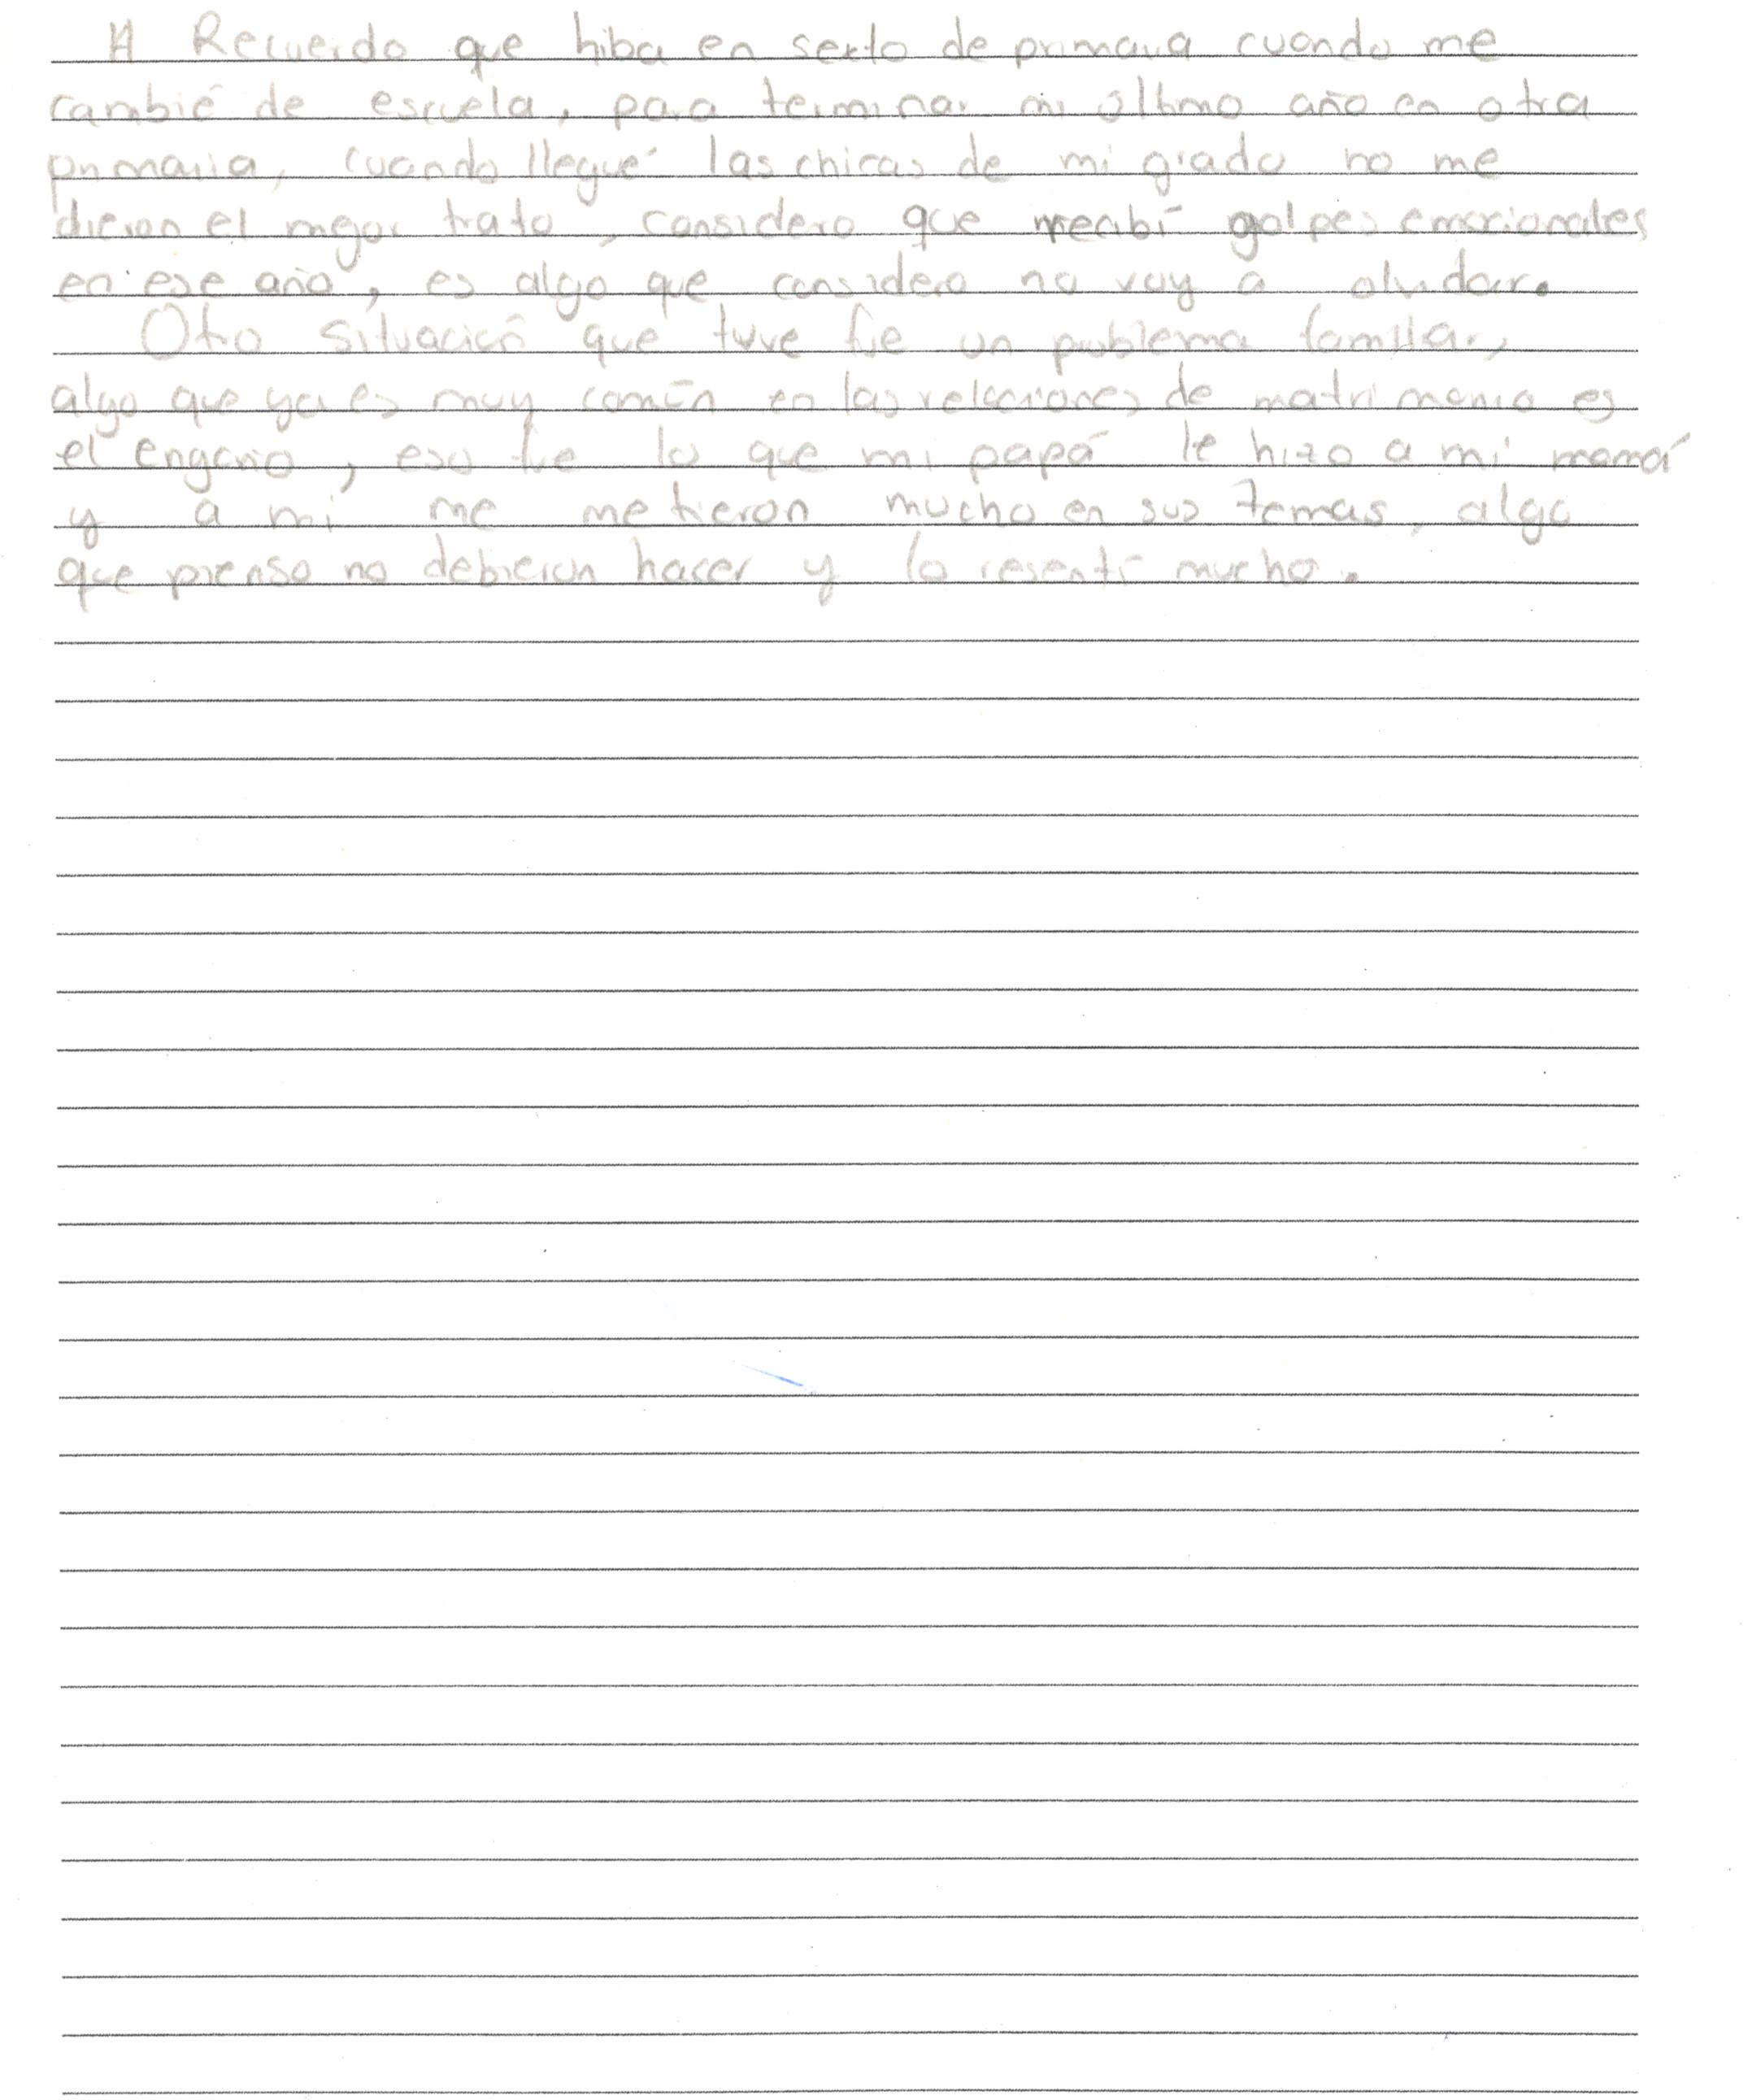 A Recuerdo que hiba en sexto de primaria cuando me
cambié de escuela, para terminar mi último año en otra
primaria, cuando llegué las chicas de mi grado no me
dieron el mejor trato, considero que recibí golpes emocionales
en ese año, es algo que considero no voy a olvidar.
Otra situación que tuve fue un problema familiar,
algo que ya es muy común en las relaciones de matrimonio es
el engaño, eso fue lo que mi papá le hizo a mi mamá
y a mi me metieron mucho en sus temas, algo
que pienso no debieron hacer y lo resentí mucho.